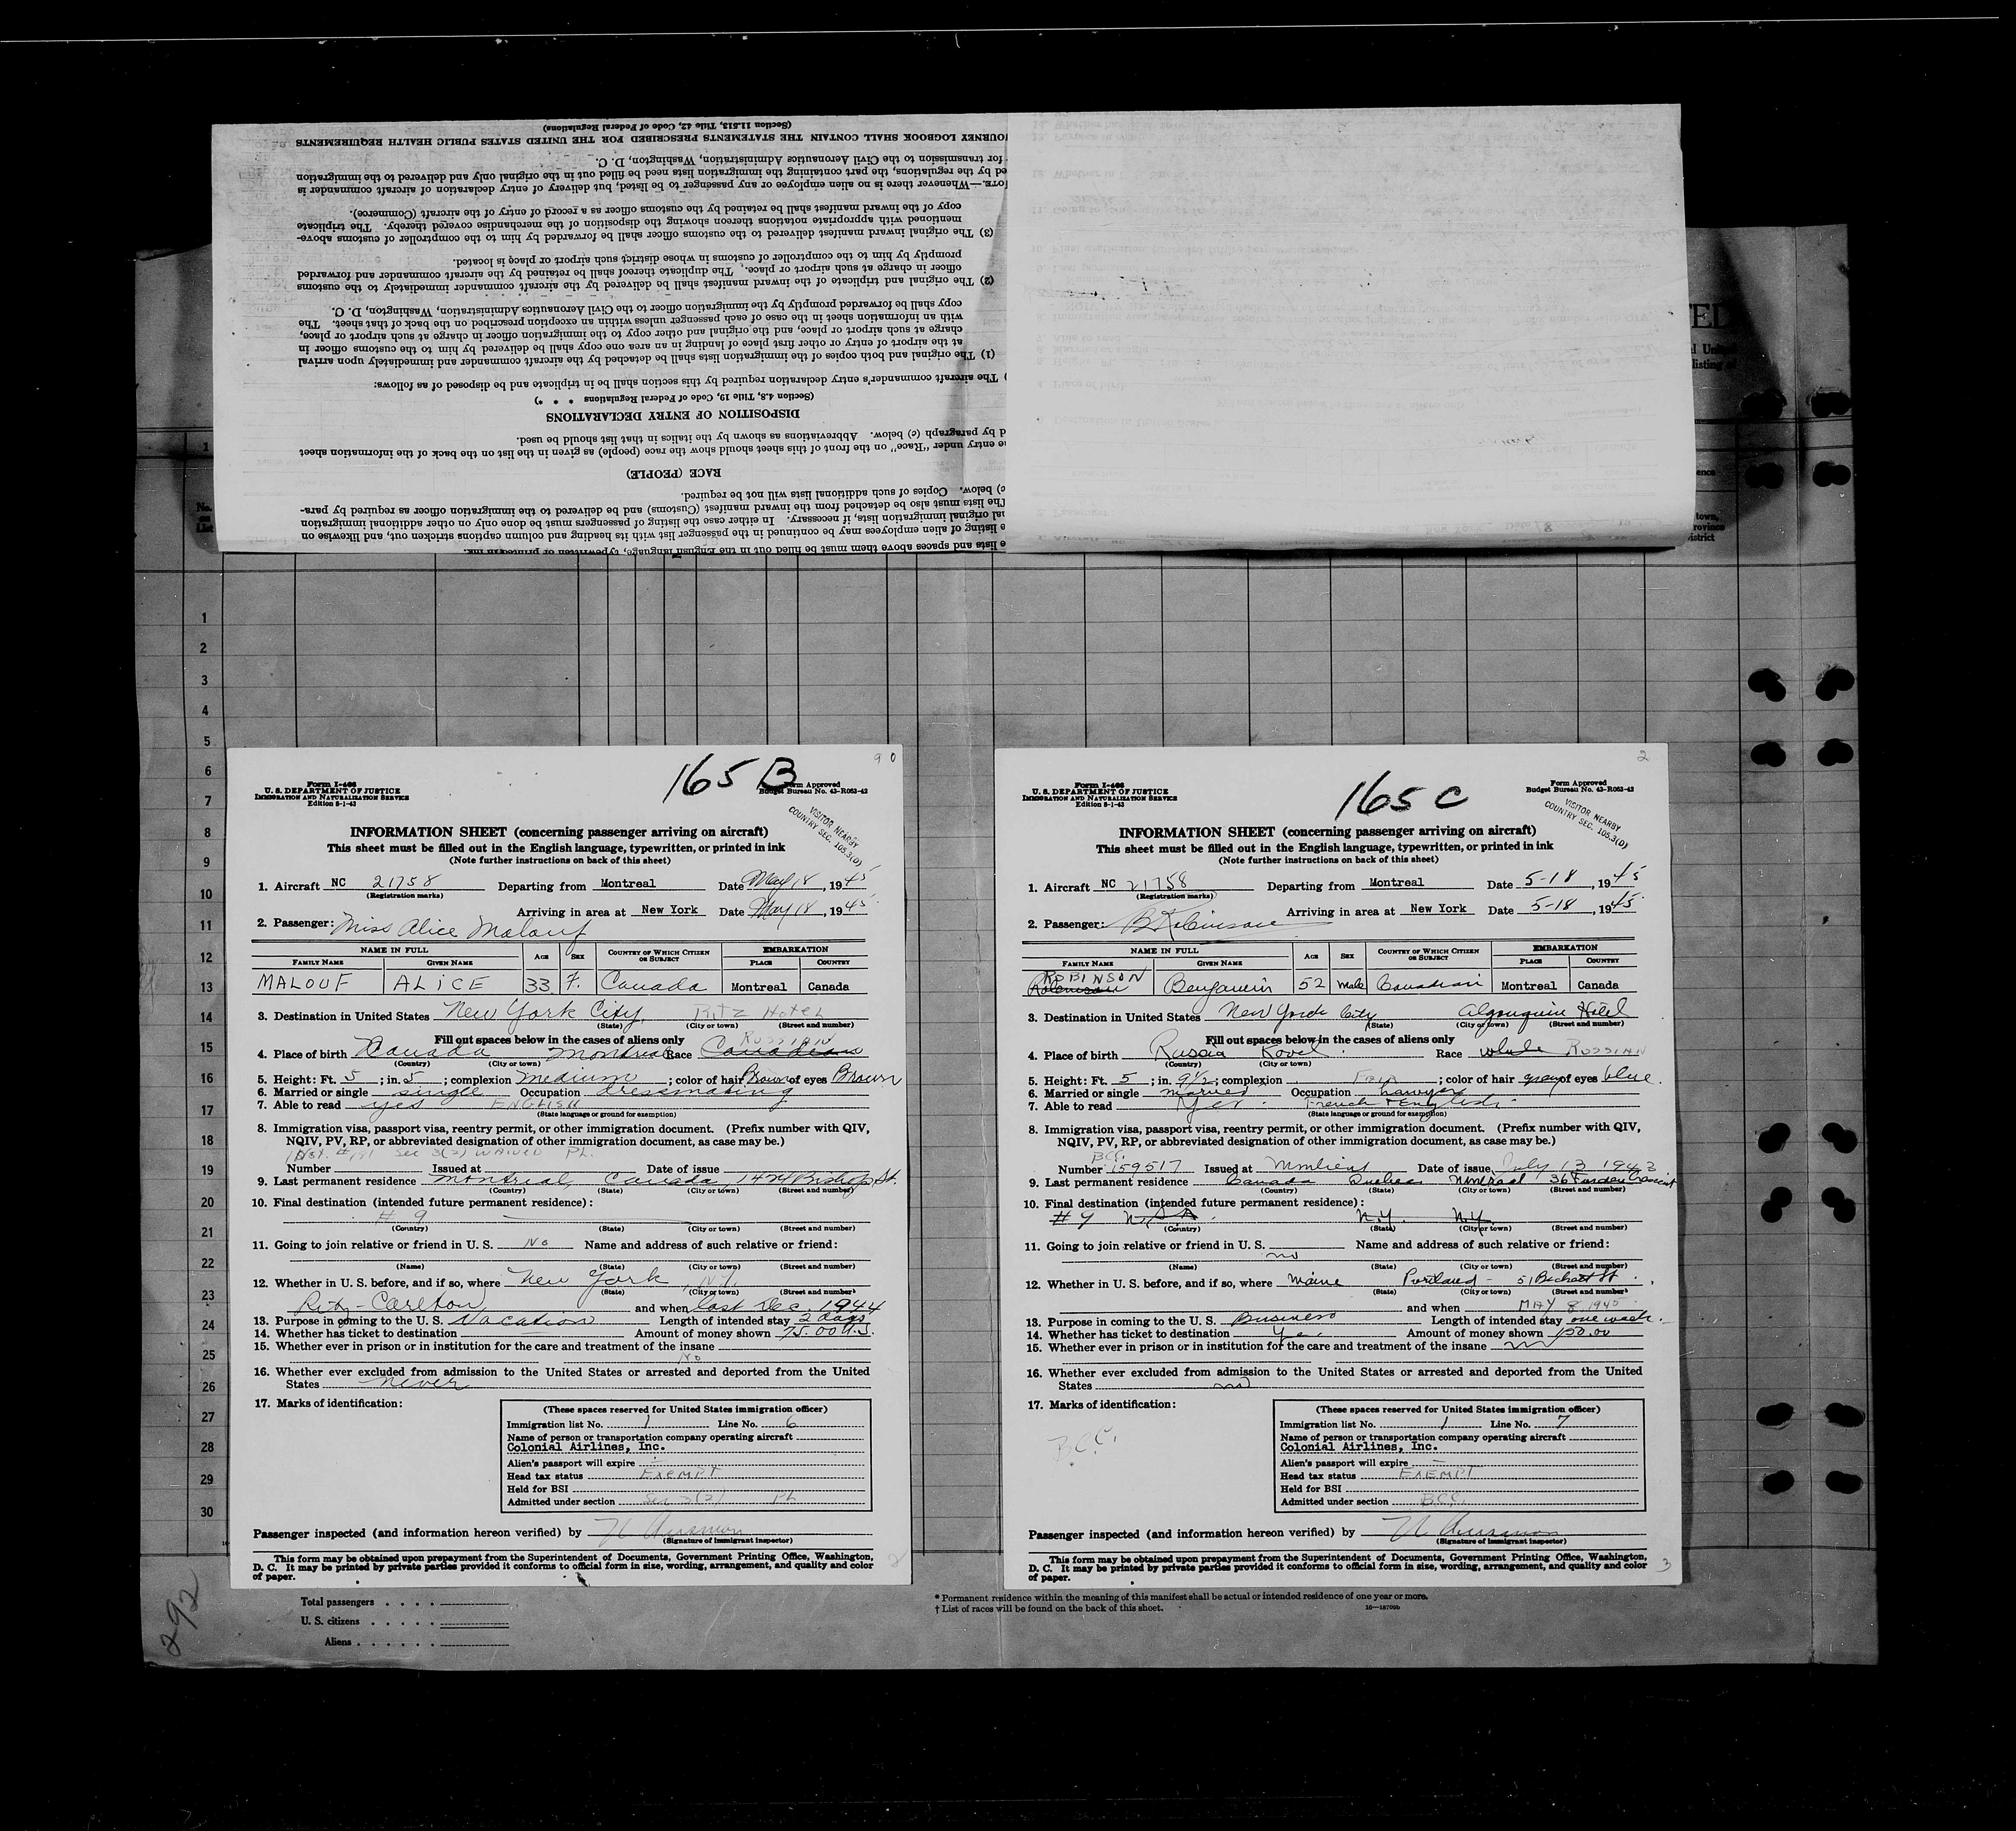 (Section 11.513, Title 42, Code of Federal Regulations)
OURNEY LOGBOOK SHALL CONTAIN THE STATEMENTS PRESCRIBED FOR THE UNITED STATES PUBLIC HEALTH REQUIREMENTS
for transmission to the Civil Aeronautics Administration, Washington, D. C.
ed by the regulations, the part containing the immigration lists need be filled out in the original only and delivered to the immigration
OTE.—Whenever there is no alien employee or any passenger to be listed, but delivery of entry declaration of aircraft commander is
copy of the inward manifest shall be retained by the customs officer as a record of entry of the aircraft (Commerce).
mentioned with appropriate notations thereon showing the disposition of the merchandise covered thereby. The triplicate
(3) The original inward manifest delivered to the customs officer shall be forwarded by him to the comptroller of customs above-
promptly by him to the comptroller of customs in whose district such airport or place is located.
officer in charge at such airport or place. The duplicate thereof shall be retained by the aircraft commander and forwarded
(2) The original and triplicate of the inward manifest shall be delivered by the aircraft commander immediately to the customs
copy shall be forwarded promptly by the immigration officer to the Civil Aeronautics Administration, Washington, D. C.
with an information sheet in the case of each passenger unless within an exception prescribed on the back of that sheet. The
charge at such airport or place, and the original and other copy to the immigration officer in charge at such airport or place,
at the airport of entry or other first place of landing in an area one copy shall be delivered by him to the customs officer in
(1) The original and both copies of the immigration lists shall be detached by the aircraft commander and immediately upon arrival
) The aircraft commander's entry declaration required by this section shall be in triplicate and be disposed of as follows:
(Section 4.8, Title 19, Code of Federal Regulations * * *)
DISPOSITION OF ENTRY DECLARATIONS
d by paragraph (c) below. Abbreviations as shown by the italics in that list should be used.
e entry under "Race" on the front of this sheet should show the race (people) as given in the list on the back of the information sheet
RACE (PEOPLE)
c) below. Copies of such additional lists will not be required.
The lists must also be detached from the inward manifest (Customs) and be delivered to the immigration officer as required by para-
nal original immigration lists, if necessary. In either case the listing of passengers must be done only on other additional immigration
e listing of alien employees may be continued in the passenger list with its heading and column captions stricken out, and likewise on
e lists and spaces above them must be filled out in the English language, typewritten or printed in ink.
TED
No. on List
town,
rovince
istrict
1
2
3
4
5
6
7
8
9
10
11
12
13
14
15
16
17
18
19
20
21
22
23
24
25
26
27
28
29
30
90
165 B
Form I-466
U. S. DEPARTMENT OF JUSTICE
IMMIGRATION AND NATURALIZATION SERVICE
Edition 5-1-43
Form Approved
Budget Bureau No. 43-R063-42
VISITOR NEARBY
COUNTRY SEC. 105.3(D)
INFORMATION SHEET (concerning passenger arriving on aircraft)
This sheet must be filled out in the English language, typewritten, or printed in ink
(Note further instructions on back of this sheet)
1. Aircraft NC 21758 Departing from Montreal Date May 18, 1945
(Registration marks)
Arriving in area at New York Date May 18, 1945
2. Passenger: Miss Alice Malouf
NAME IN FULL AGE SEX COUNTRY OF WHICH CITIZEN OR SUBJECT EMBARKATION
FAMILY NAME GIVEN NAME PLACE COUNTRY
MALOUF ALICE 33 F. Canada Montreal Canada
3. Destination in United States New York City, Ritz Hotel
(State) (City or town) (Street and number)
Fill out spaces below in the cases of aliens only
RUSSIAN
4. Place of birth Canada Montreal Race Canadian
(Country) (City or town)
5. Height: Ft. 5; in. 5; complexion medium; color of hair Brown of eyes Brown
6. Married or single single Occupation dressmaking
7. Able to read yes ENGLISH
(State language or ground for exemption)
8. Immigration visa, passport visa, reentry permit, or other immigration document. (Prefix number with QIV,
NQIV, PV, RP, or abbreviated designation of other immigration document, as case may be.)
Sec 3(2) WAIVED PL.
Number Issued at Date of issue
9. Last permanent residence Montreal, Canada, 1474 Bishop St.
(Country) (State) (City or town) (Street and number)
10. Final destination (intended future permanent residence):
# 9
(Country) (State) (City or town) (Street and number)
11. Going to join relative or friend in U. S. No Name and address of such relative or friend:
(Name) (State) (City or town) (Street and number)
12. Whether in U. S. before, and if so, where New York, N.Y.
(State) (City or town) (Street and number)
Ritz-Carlton and when last Dec. 1944
13. Purpose in coming to the U. S. Vacation Length of intended stay 2 days
14. Whether has ticket to destination Amount of money shown 75.00 U.S.
15. Whether ever in prison or in institution for the care and treatment of the insane
No
16. Whether ever excluded from admission to the United States or arrested and deported from the United
States never
17. Marks of identification:
(These spaces reserved for United States immigration officer)
Immigration list No. 1 Line No. 6
Name of person or transportation company operating aircraft
Colonial Airlines, Inc.
Alien's passport will expire —
Head tax status EXEMPT
Held for BSI
Admitted under section Sec 3(2) PL
Passenger inspected (and information hereon verified) by
(Signature of immigrant inspector)
This form may be obtained upon prepayment from the Superintendent of Documents, Government Printing Office, Washington,
D. C. It may be printed by private parties provided it conforms to official form in size, wording, arrangement, and quality and color
of paper.
2
165 C
Form I-466
U. S. DEPARTMENT OF JUSTICE
IMMIGRATION AND NATURALIZATION SERVICE
Edition 5-1-43
Form Approved
Budget Bureau No. 43-R063-42
VISITOR NEARBY
COUNTRY SEC. 105.3(D)
INFORMATION SHEET (concerning passenger arriving on aircraft)
This sheet must be filled out in the English language, typewritten, or printed in ink
(Note further instructions on back of this sheet)
1. Aircraft NC 21758 Departing from Montreal Date 5-18, 1945
(Registration marks)
Arriving in area at New York Date 5-18, 1945
2. Passenger: B Robinson
NAME IN FULL AGE SEX COUNTRY OF WHICH CITIZEN OR SUBJECT EMBARKATION
FAMILY NAME GIVEN NAME PLACE COUNTRY
ROBINSON
Robinson Benjamin 52 Male Canadian Montreal Canada
3. Destination in United States New York City Algonquin Hotel
(State) (City or town) (Street and number)
Fill out spaces below in the cases of aliens only
4. Place of birth Russia Kovel Race white RUSSIAN
(Country) (City or town)
5. Height: Ft. 5; in. 9½; complexion Fair; color of hair grey of eyes blue
6. Married or single married Occupation Lawyer
7. Able to read Yes French & English
(State language or ground for exemption)
8. Immigration visa, passport visa, reentry permit, or other immigration document. (Prefix number with QIV,
NQIV, PV, RP, or abbreviated designation of other immigration document, as case may be.)
BCC
Number 159517 Issued at Date of issue July 13 1943
9. Last permanent residence Canada Quebec Montreal 36 Crescent
(Country) (State) (City or town) (Street and number)
10. Final destination (intended future permanent residence):
# 9 N.Y. N.Y.
(Country) (State) (City or town) (Street and number)
11. Going to join relative or friend in U. S. no Name and address of such relative or friend:
(Name) (State) (City or town) (Street and number)
12. Whether in U. S. before, and if so, where Maine Portland - 51 St.
(State) (City or town) (Street and number)
and when MAY 8 1945
13. Purpose in coming to the U. S. Business Length of intended stay one week.
14. Whether has ticket to destination Yes Amount of money shown 150.00
15. Whether ever in prison or in institution for the care and treatment of the insane no
16. Whether ever excluded from admission to the United States or arrested and deported from the United
States no
17. Marks of identification:
B.C.C.
(These spaces reserved for United States immigration officer)
Immigration list No. 1 Line No. 7
Name of person or transportation company operating aircraft
Colonial Airlines, Inc.
Alien's passport will expire —
Head tax status EXEMPT
Held for BSI
Admitted under section B.C.C.
Passenger inspected (and information hereon verified) by
(Signature of immigrant inspector)
This form may be obtained upon prepayment from the Superintendent of Documents, Government Printing Office, Washington,
D. C. It may be printed by private parties provided it conforms to official form in size, wording, arrangement, and quality and color
of paper.
3
292
Total passengers
U. S. citizens
Aliens
* Permanent residence within the meaning of this manifest shall be actual or intended residence of one year or more.
† List of races will be found on the back of this sheet.